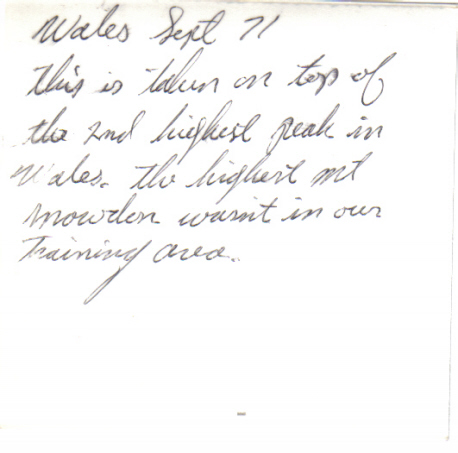 Wales Sept 71
This is taken on top of
the 2nd highest peak in
Wales. The highest mt
Snowden wasnt in our
Training area.